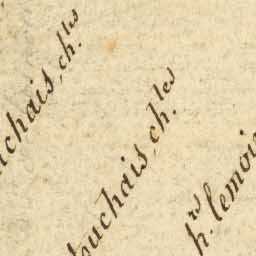 chais, ch.les
ouchais, ch.les
h.rs lemoi